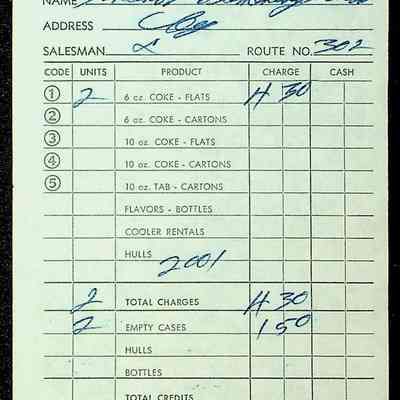 NAME
ADDRESS
SALESMAN. ROUTE NO. 302
CODE UNITS PRODUCT CHARGE CASH
① 2 6 oz. COKE - FLATS 4 30
② 6 oz. COKE - CARTONS
③ 10 oz. COKE - FLATS
④ 10 oz. COKE - CARTONS
⑤ 10 oz. TAB - CARTONS
FLAVORS - BOTTLES
COOLER RENTALS
HULLS
2001
2 TOTAL CHARGES 4 30
2 EMPTY CASES 1 50
HULLS
BOTTLES
TOTAL CREDITS